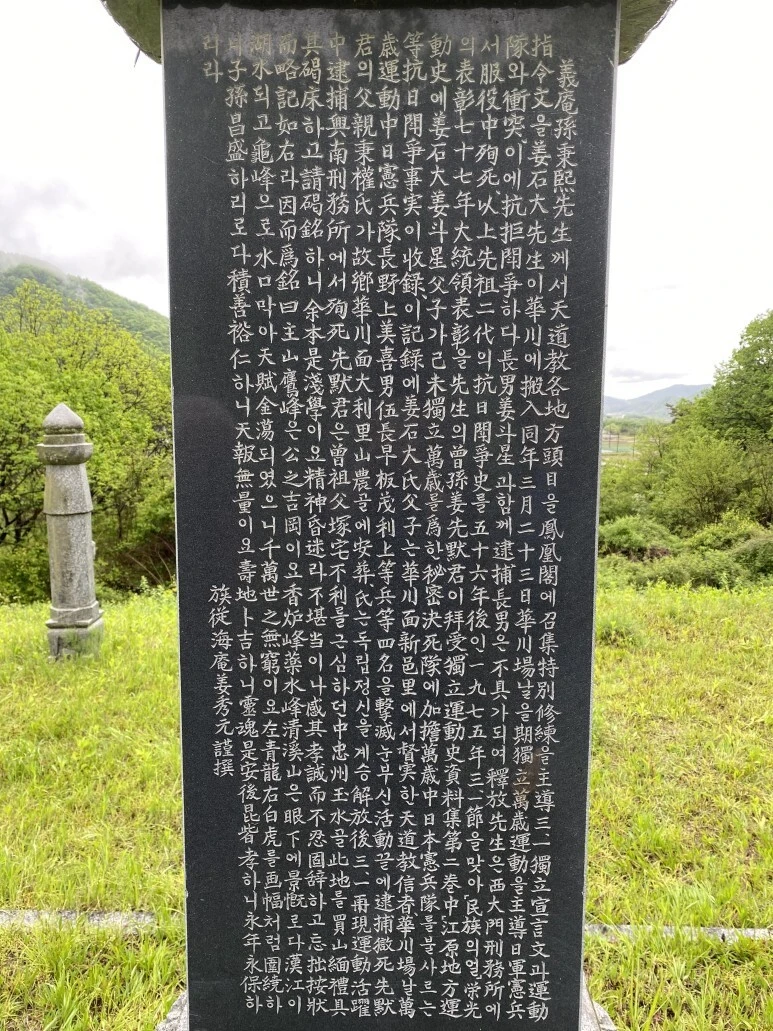 義庵孫秉熙先生께서天道教各地方頭目을鳳凰閣에召集特別修練을主導三一獨立宣言文과運動
指令文을姜石大先生이華川에搬入同年三月二十三日華川場날을期獨立萬歲運動을主導日軍憲兵
隊와衝突이에抗拒鬪爭하다長男姜斗星과함께逮捕長男은不具가되여釋放先生은西大門刑務所에
서服役中殉死以上先祖二代의抗日鬪爭史를五十六年後인一九七五年三一節을맞아民族의얼栄光
의表彰七十七年大統領表彰을先生의曾孫姜先默君이拜受獨立運動史資料集第二巻中江原地方運
動史에姜石大姜斗星父子가己未獨立萬歲를爲한秘密決死隊에加擔萬歲中日本憲兵隊를불사르는
等抗日鬪爭事実이收録이記録에姜石大氏父子는華川面新邑里에서督実한天道教信者華川場날萬
歲運動中日憲兵隊長野上美喜男伍長早板茂利上等兵等四名을擊滅눈부신活動끝에逮捕獄死先默
君의父親秉權氏가故鄕華川面大利里山農골에安葬氏는독립정신을계승解放後三一再現運動活躍
中逮捕興南刑務所에서殉死先默君은曾祖父塚宅不利를근심하던中忠州玉水골此地를買山緬禮具
其碣床하고請碣銘하니余本是淺學이요精神昏迷라不堪当이나感其孝誠而不忍固辞하고忘拙按狀
而略記如右라因而爲銘曰主山鷹峰은公之吉岡이요香炉峰藥水峰清溪山은眼下에景概로다漢江이
湖水되고龜峰으로水口막아天賦金蕩되였으니千萬世之無窮이요左青龍右白虎를画幅처럼圍繞하
니子孫昌盛하리로다積善裕仁하니天報無量이요壽地卜吉하니靈魂是安後昆皆孝하니永年永保하
리라
族従海庵姜秀元謹撰